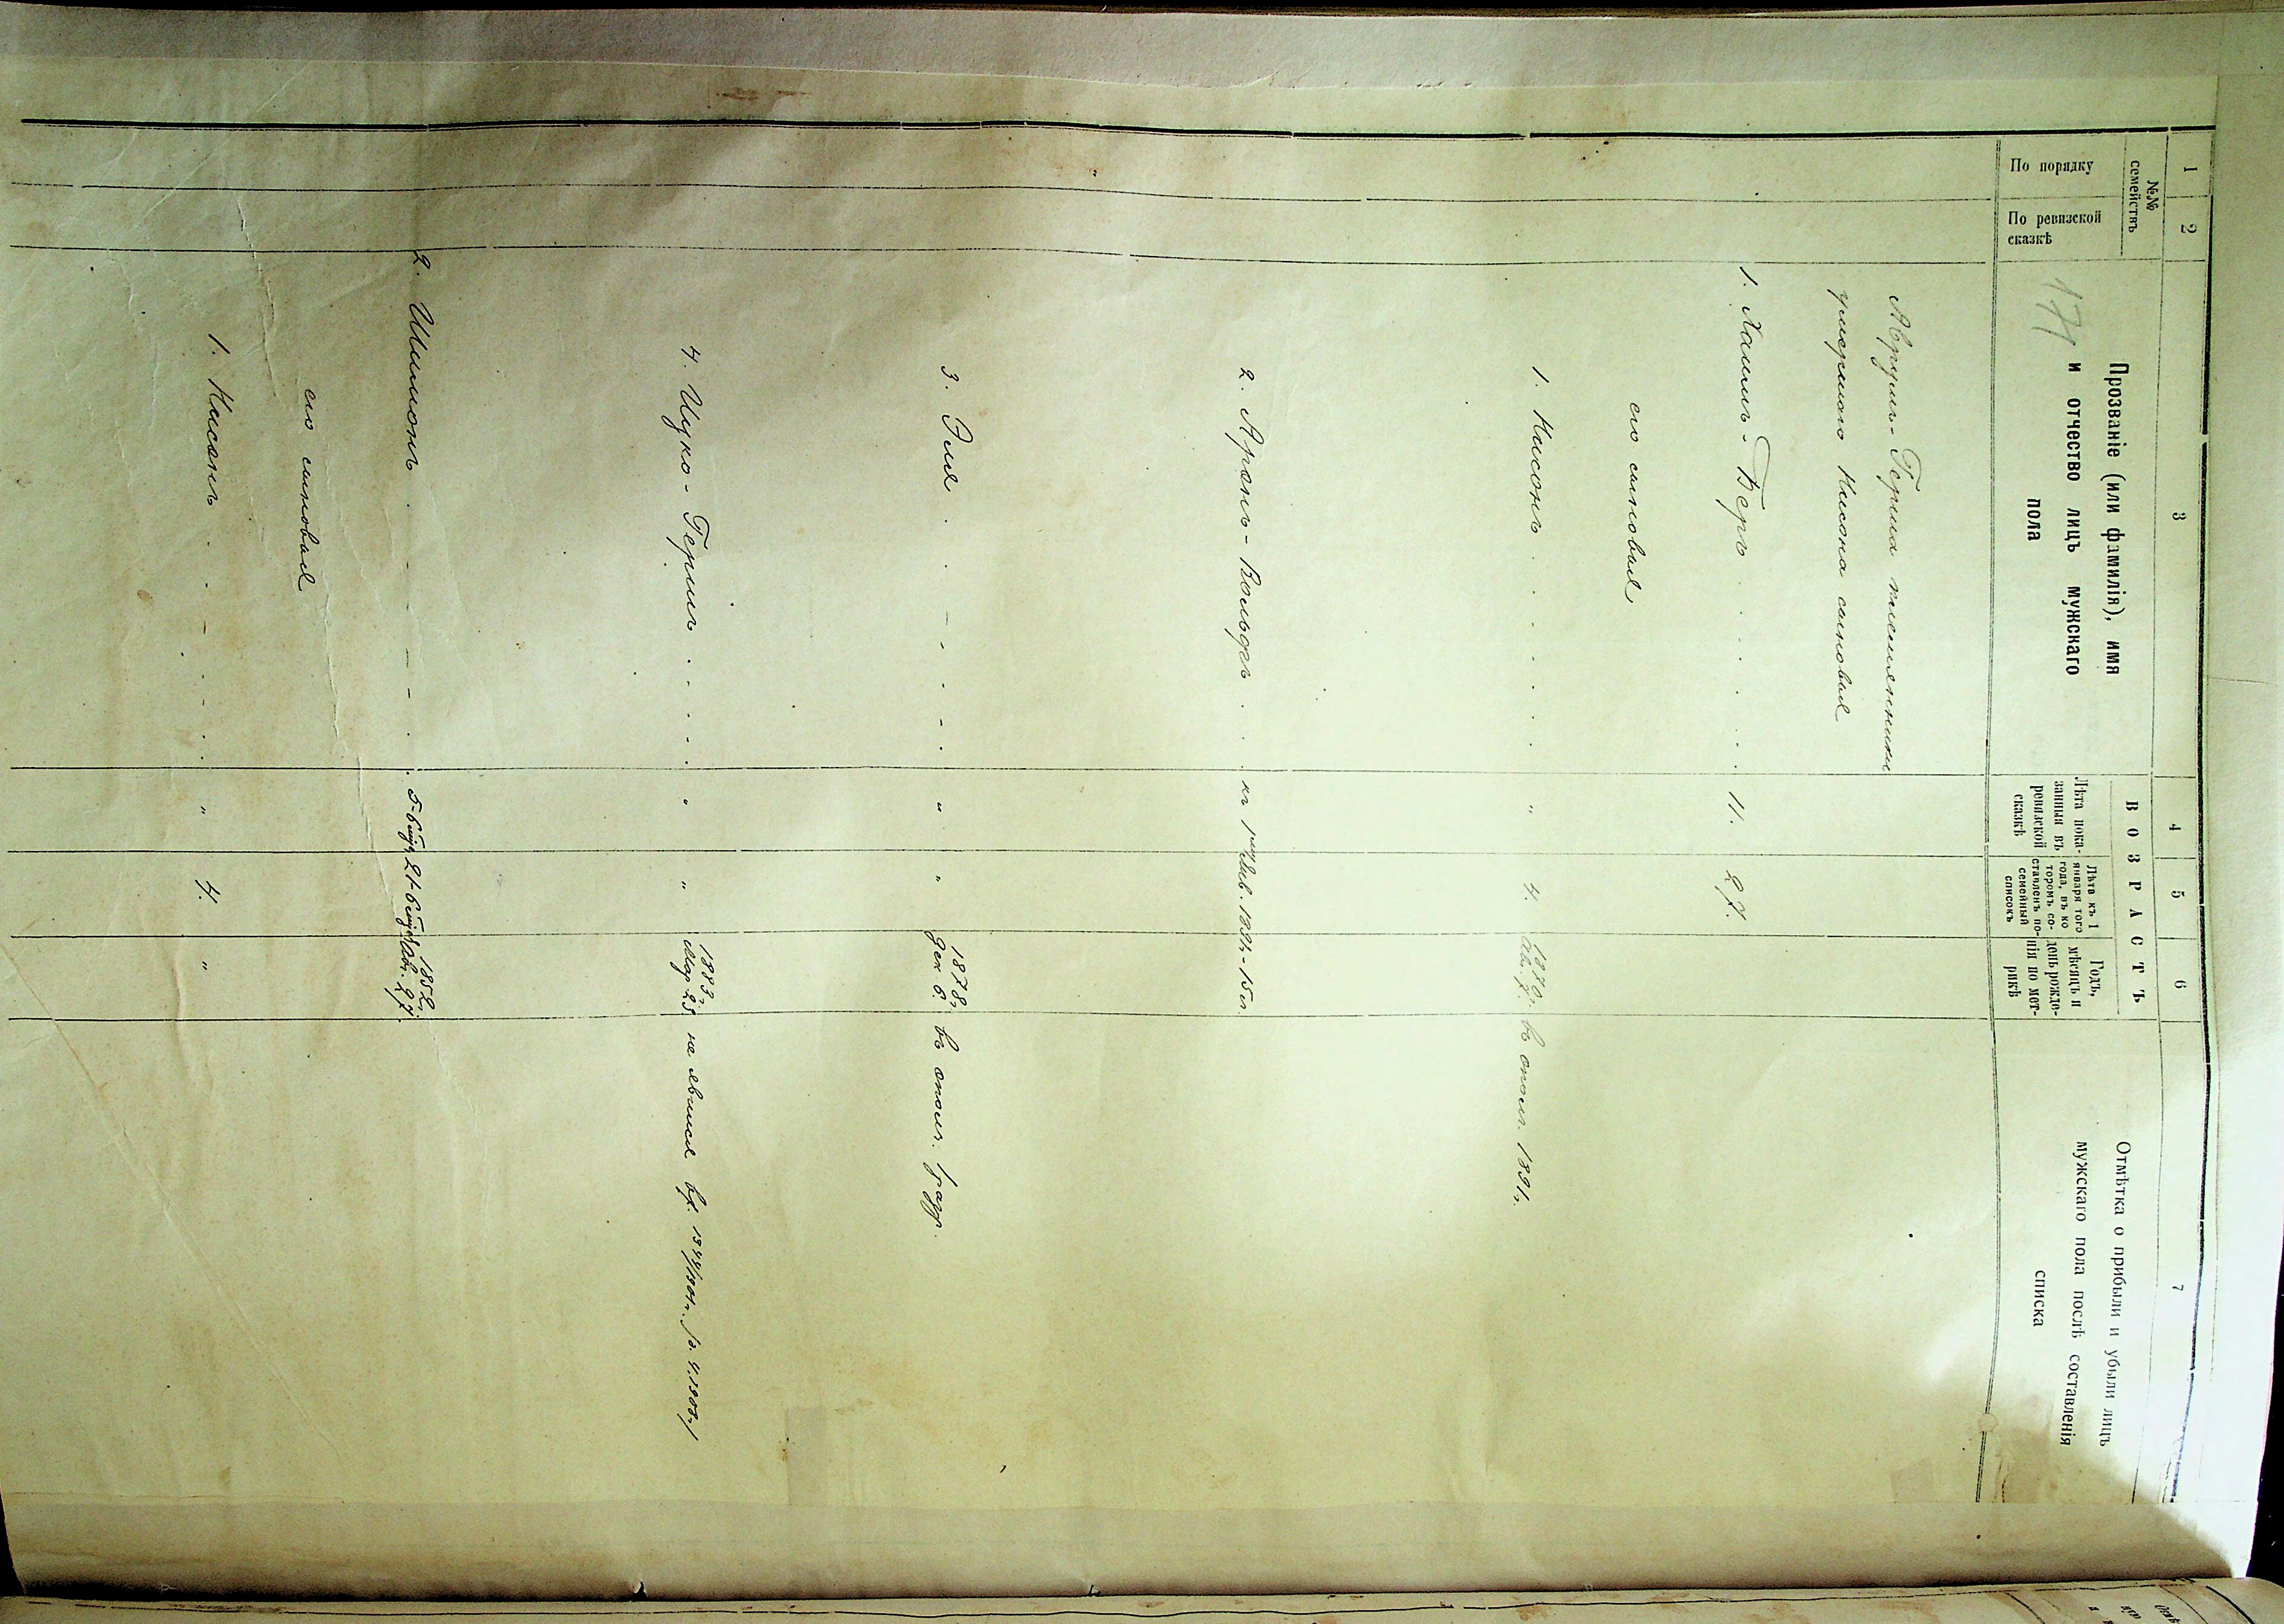 1 2 3 4 5 6 7
№№ семействъ
По порядку
По ревизской сказкѣ
Прозваніе (или фамилія), имя
и отчество лицъ мужскаго
пола
ВОЗРАСТЪ
Лѣта пока-
занныя въ
ревизской
сказкѣ
Лѣта къ 1
января того
года, въ ко
торомъ со-
ставленъ по-
семейный
списокъ
Годъ,
мѣсяцъ и
день рожде-
нія по мет-
рикѣ
Отмѣтка о прибыли и убыли лицъ
мужскаго пола послѣ составленія
списка
174
Аврумъ-Герша племянники
умершаго Нисона сыновья
1. Хаимъ-Беръ 11. 27.
его сыновья
1. Нисонъ " 4. 1870 въ ополч. 1891г.
2. Аронъ-Вольфъ къ 1891г.-15л
3. Эля " " 1878г. дек 6. въ ополч. 1 разр.
4. Ицко-Гершъ " " 1883г. Мар 25 не явился
2. Шимонъ 1852г. 27.
его сыновья
1. Нисонъ " 4. "